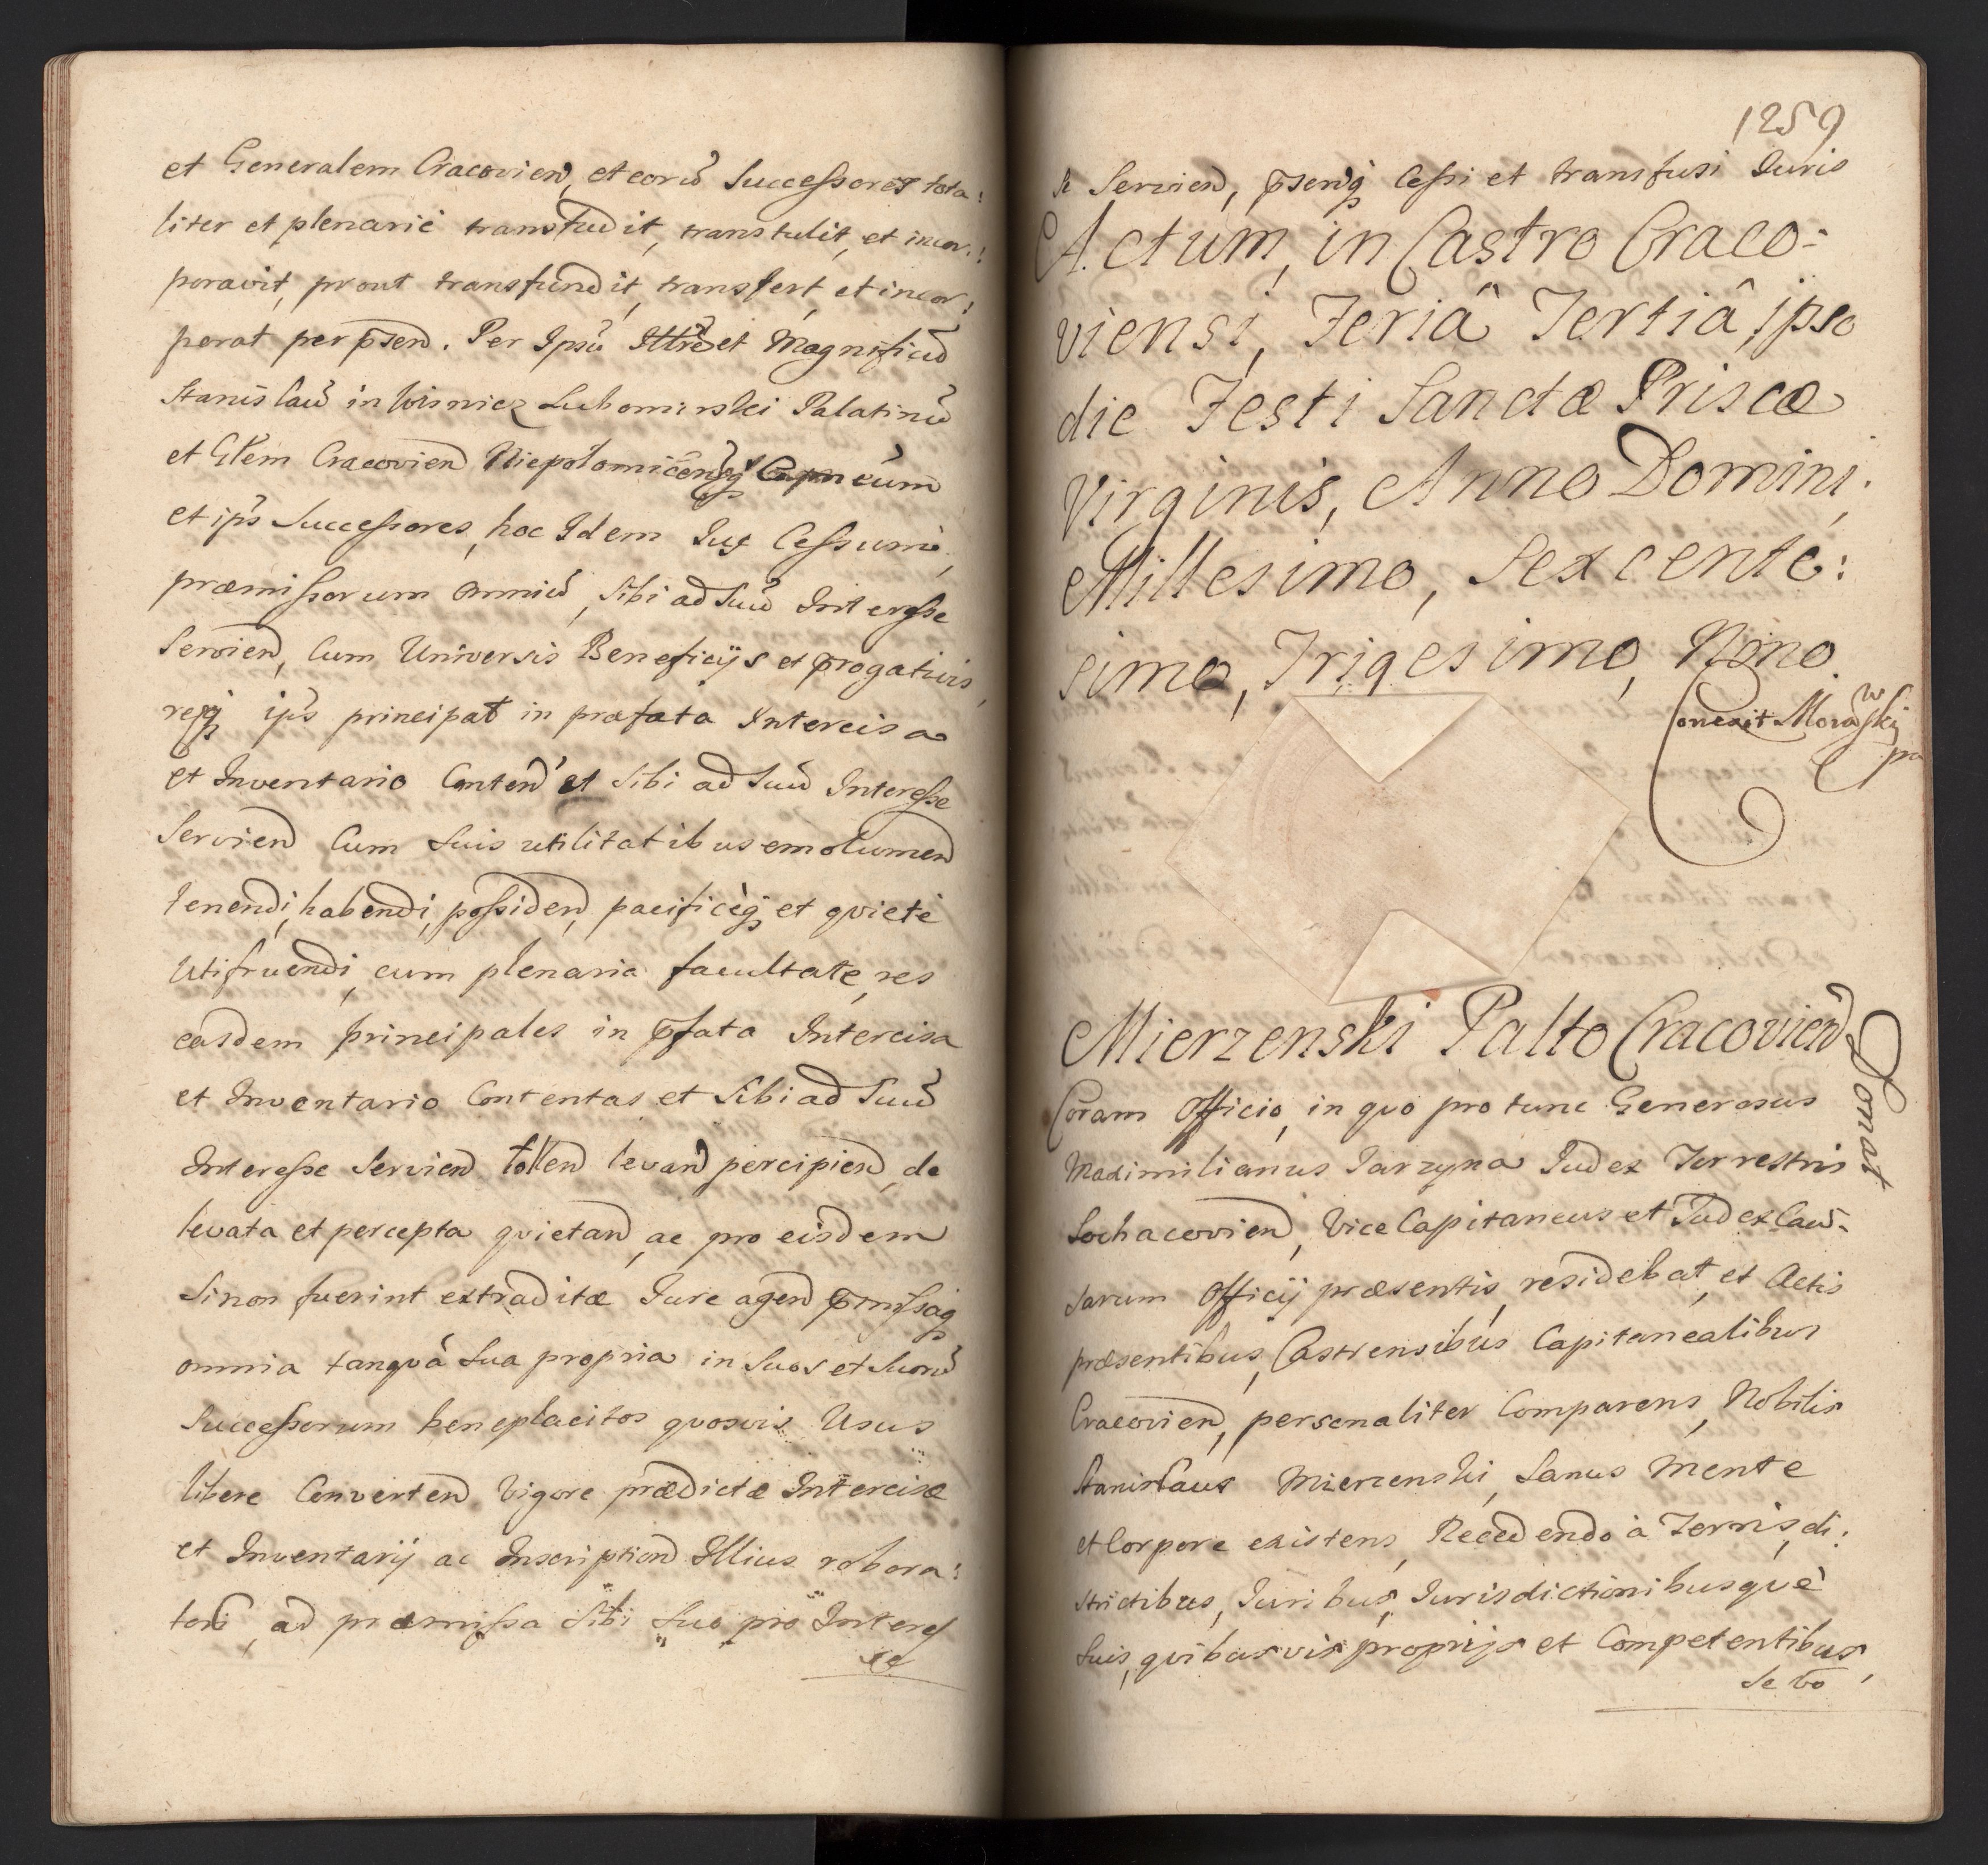 et Generalem Cracovien, et eorũ Successores tota:
liter et plenarie transfudit, transtulit, et incor:
poravit, prout transfundit, transfert, et incor:
porat per p̄sen. Per Ipsũ Illrẽ et Magnificũ
Stanislaũ in Wisnicz Lubomirski Palatinũ
et Gñlem Cracovien Niepołomicenq3 Capneũm
et ip's Successores, hoc Idem Jus Cessumq
præmissorum omniũ, sibi ad suũ Interesse
servien, Cum Universis Beneficijs et p̄rogativis,
resq3 ip's principat in præfata Intercisa
et Inventario Conten et sibi ad suũ Interesse
servien Cum suis utilitatibus emolumen
tenendi, habendi, possiden, pacificèq3 et qviete
Utifruendi, cum plenaria facultate, res
easdem principales in p̄fata Intercisa
et Inventario Contentas et sibi ad suũ
Interesse servien tollen levan percipien, de
levata et percepta qvietan, ac pro eisdem
si non fuerint extraditæ Jure agen p̄missaq3
omnia tanqvã sua propria in suos et suorũ
Successorum beneplacitos qvosvis Usus
libere Converten Vigore prædictæ Intercisæ
et Inventarij ac Inscription Illius robora:
toriæ, ad præmissa sibi suo pro Interes
se
1259
se servien, p̄senq3 Cessi et transfusi Juris
Actum, in Castro Craco-
viensi, Feriâ Tertiâ, ipso
die Festi Sanctæ Priscæ
Virginis, Anno Domini,
Millesimo, Sexcente:
simo, Trigesimo, Nono.
Coñcait Morawski
pa
Mierzenski Palto Cracovien
Donat
Coram Officio, in qvo pro tunc Generosus
Maximilianus Jarzyna Judex Terrestris
Sochacovien, Vice Capitaneus et Judex Cau-
sarum Officij præsentis, residebat, et Actis
præsentibus, Castrensibus Capitanealibus
Cracovien, personaliter Comparens, Nobilis
Stanislaus Mierzenski, Sanus Mente
et Corpore existens, Recedendo à Terris, di:
strictibus, Juribus, Jurisdictionibusqvè
suis, qvibusvis proprijs et Competentibus,
se vo